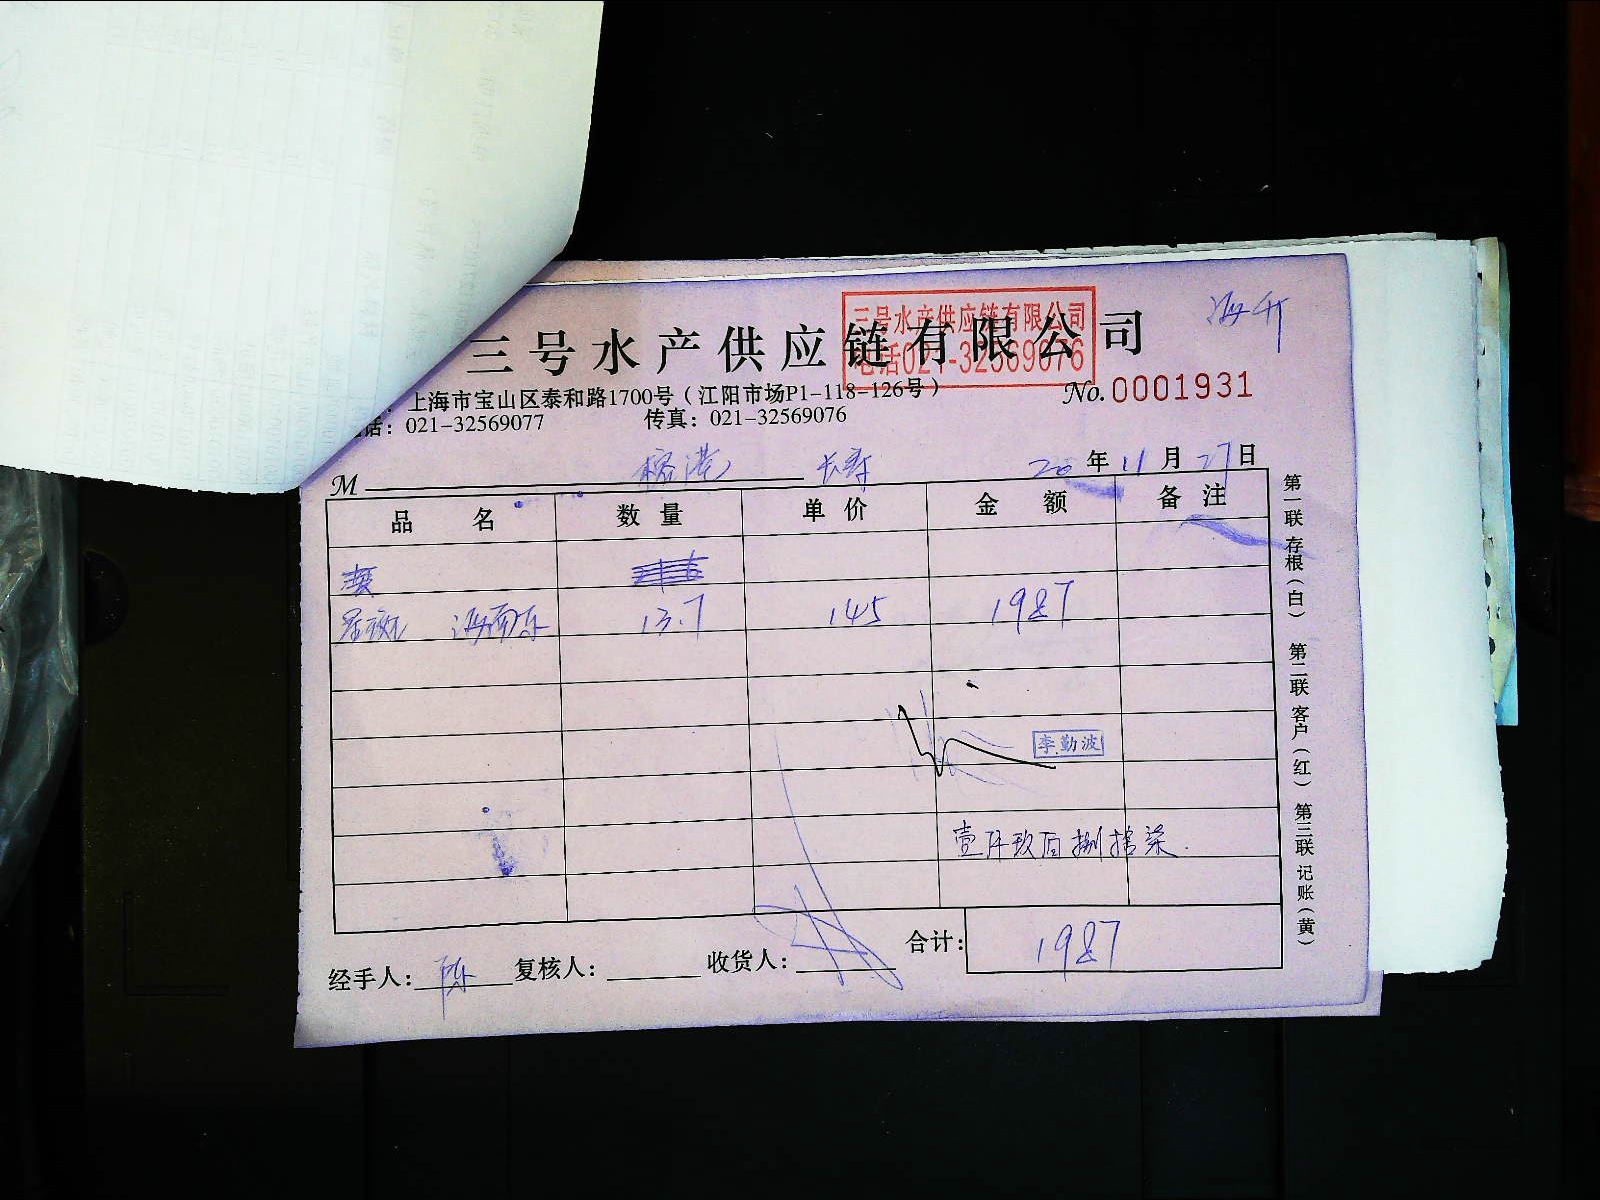 三号水产供应链有限公司
三号水产供应链有限公司
电话021-32569076
海升
上海市宝山区泰和路1700号（江阳市场P1-118-126号）
No. 0001931
话：021-32569077 传真：021-32569076
M 榕港 长寿 20年11月27日
品名 数量 单价 金额 备注
海南东 13.7 145 1987
李勤波
壹仟玖佰捌拾柒
合计：1987
经手人：陈 复核人： 收货人：
第一联 存根（白） 第二联 客户（红） 第三联 记账（黄）